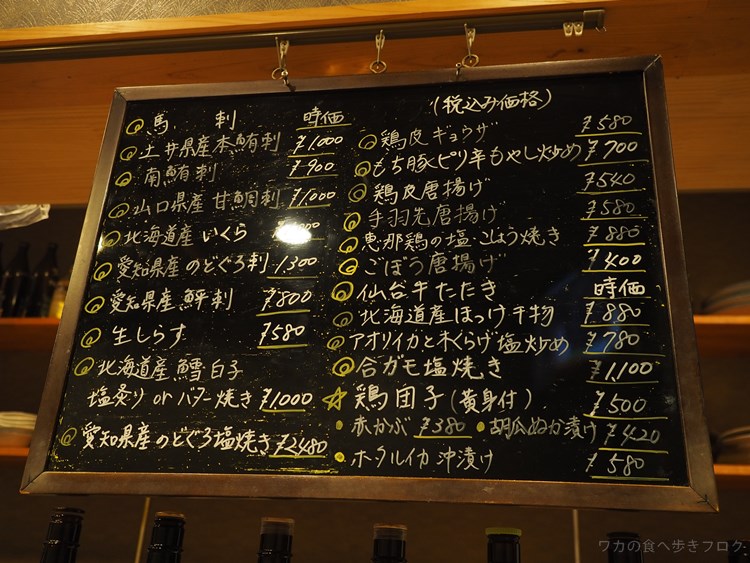 馬刺 時価
土井県産本鮪刺 ¥1,000
南鮪刺 ¥900
山口県産甘鯛刺 ¥1,000
北海道産いくら
愛知県産のどぐろ刺 1300
愛知県産鮃刺 ¥800
生しらす ¥580
北海道産鱈白子
塩炙り or バター焼き ¥1,000
愛知県産のどぐろ塩焼き ¥2480
(税込み価格)
鶏皮ギョウザ ¥580
もち豚ピリ辛もやし炒め ¥700
鶏皮唐揚げ ¥540
手羽先唐揚げ ¥580
恵那鶏の塩こしょう焼き ¥880
ごぼう唐揚げ ¥400
仙台牛たたき 時価
北海道産ほっけ干物 ¥880
アオリイカと木くらげ塩炒め ¥780
合ガモ塩焼き ¥1,100
☆鶏団子(黄身付) ¥500
・赤かぶ ¥380 ・胡瓜ぬか漬け ¥420
・ホタルイカ沖漬け ¥580
ワカの食べ歩きブログ